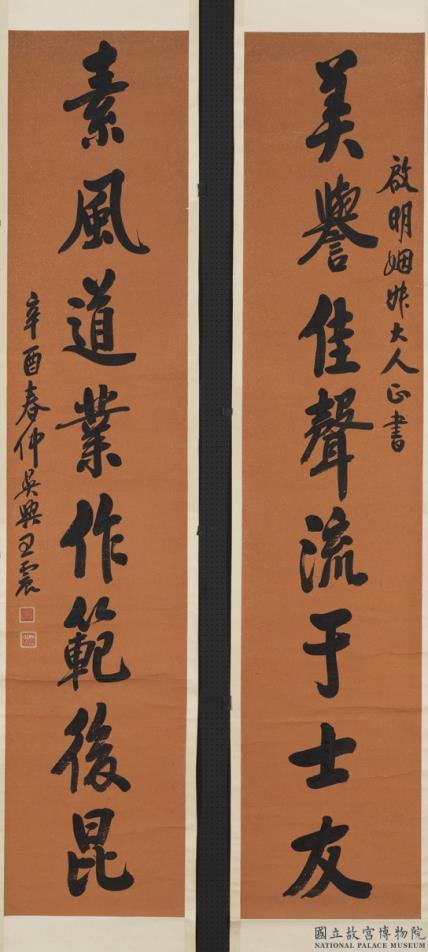 啟明姻丈大人正書
美譽佳聲流于士友
素風道業作範後昆
辛酉春仲吳興王震
國立故宮博物院
NATIONAL PALACE MUSEUM